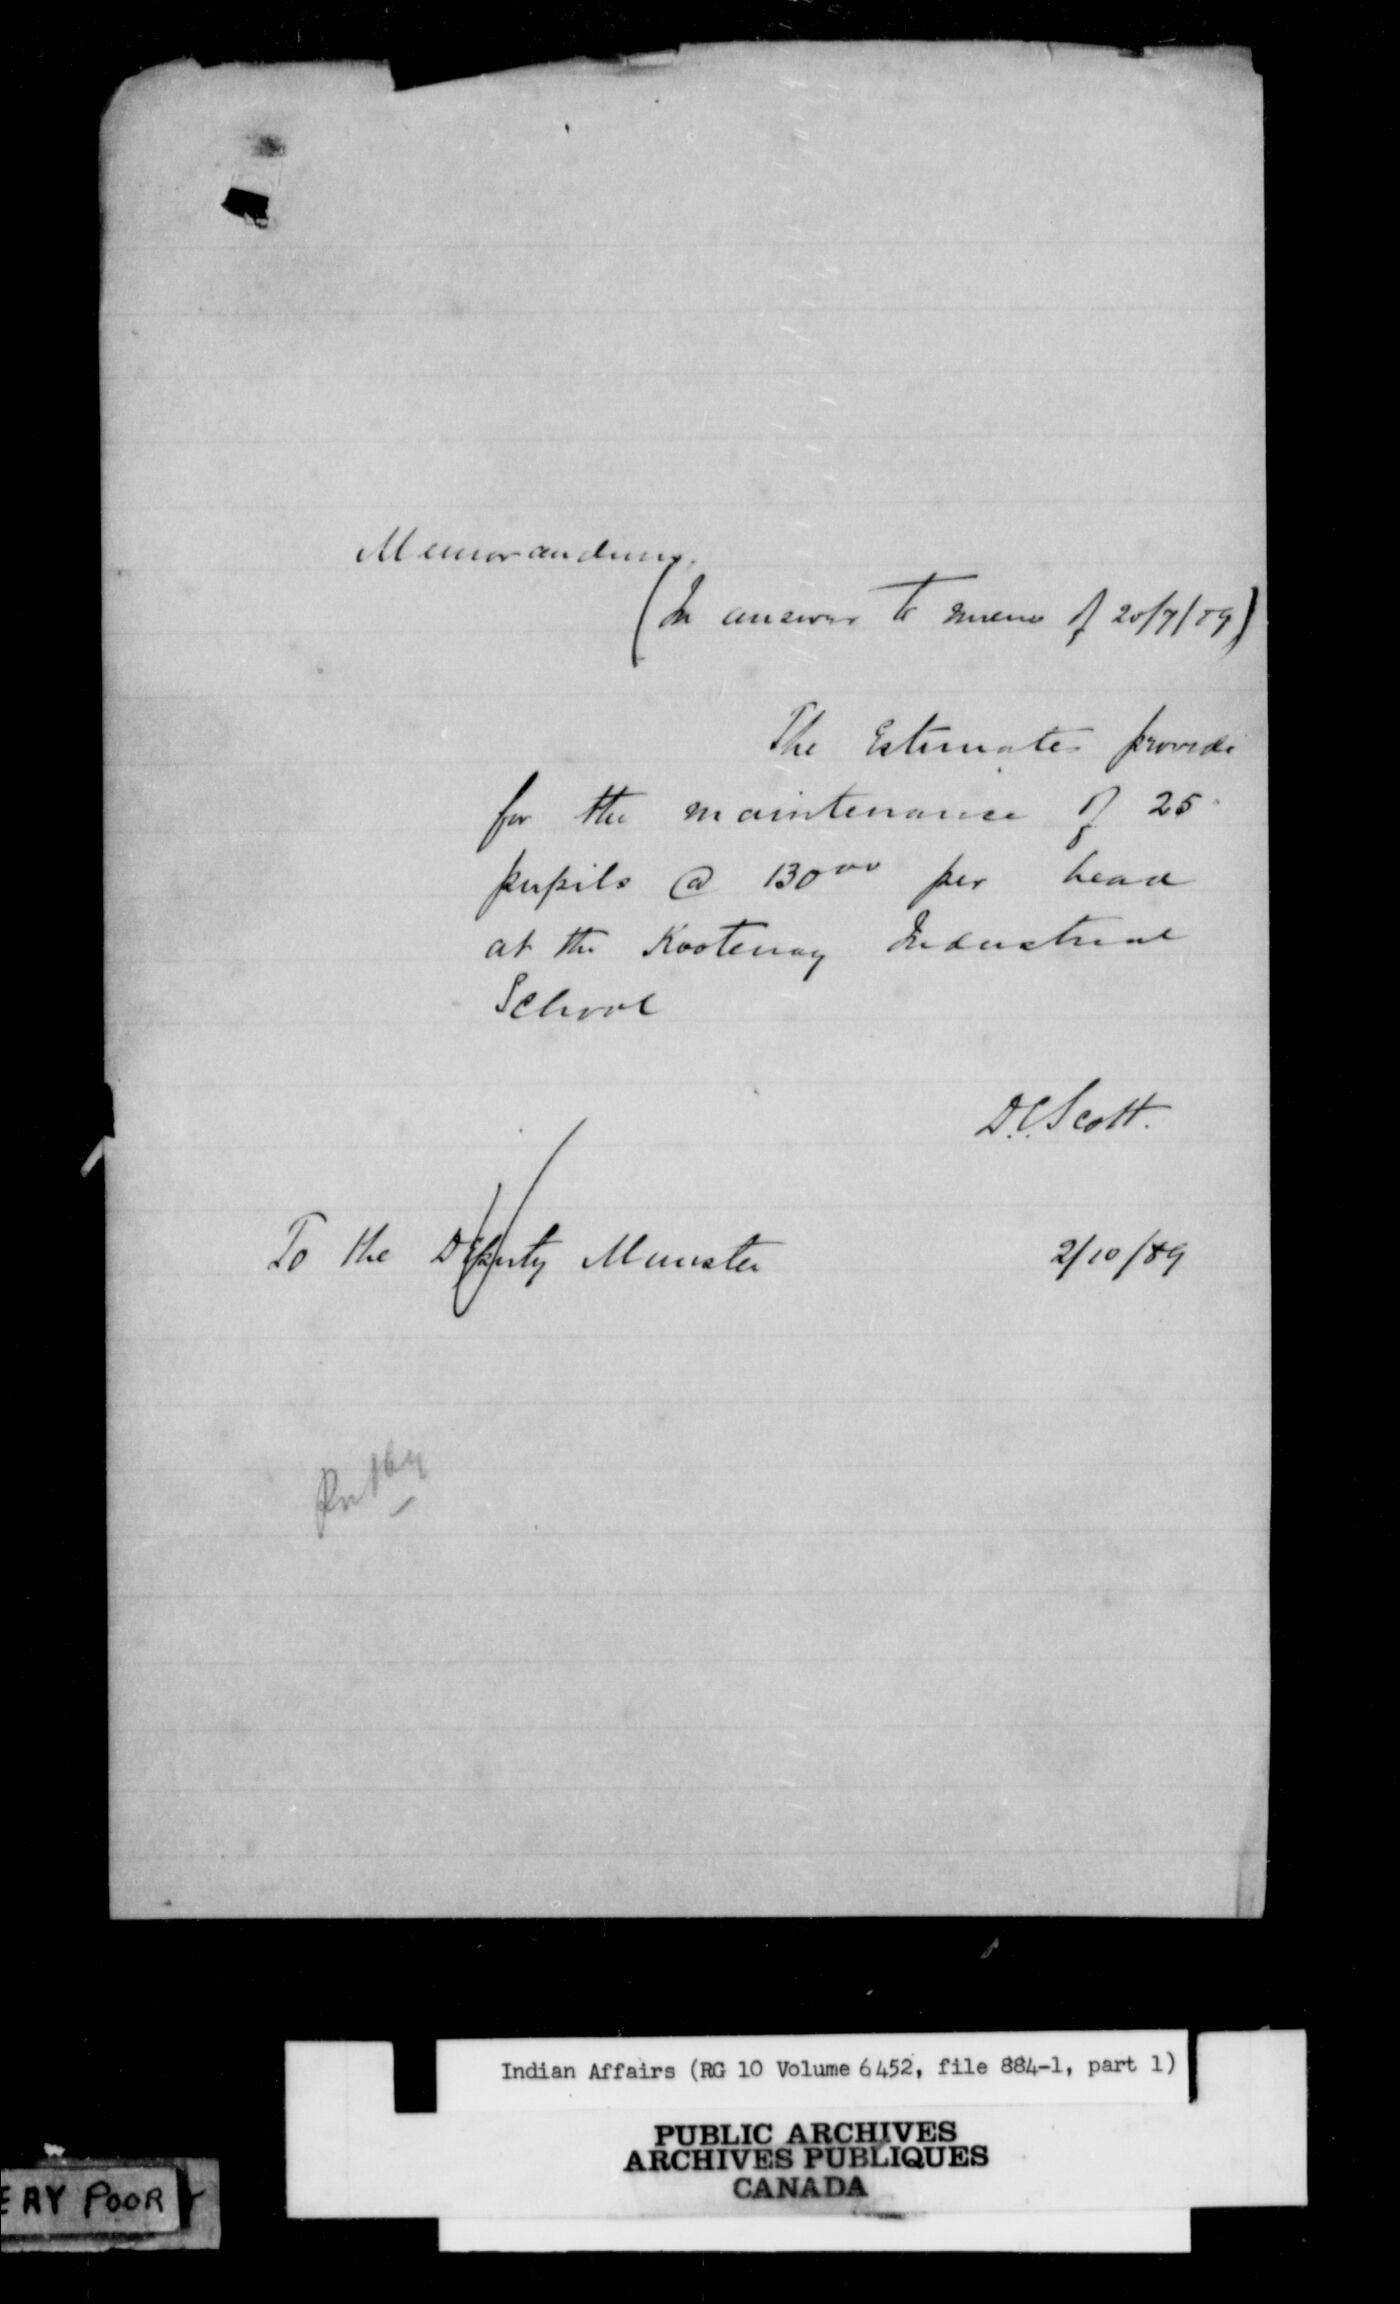 Memorandum.
(In answer to memo of 20/9/89)
The Estimates provide
for the maintenance of 25
pupils @ 130⁰⁰ per head
at the Kootenay Industrial
School
D.C. Scott.
To the Deputy Minister
2/10/89
Indian Affairs (RG 10 Volume 6452, file 884-1, part 1)
PUBLIC ARCHIVES
ARCHIVES PUBLIQUES
CANADA
ERY POOR